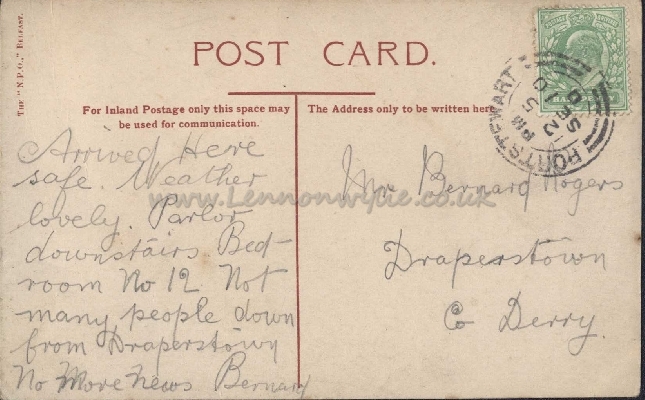 THE "N.P.O.," BELFAST.
POST CARD.
For Inland Postage only this space may
be used for communication.
The Address only to be written here.
PORTSTEWART
PM
Arrived Here
safe. Weather
lovely. Parlor
downstairs Bed-
room No 12 Not
many people down
from Draperstown
No More News Bernard
Mr Bernard Rogers
Draperstown
Co Derry.
www.Lennonwylie.co.uk